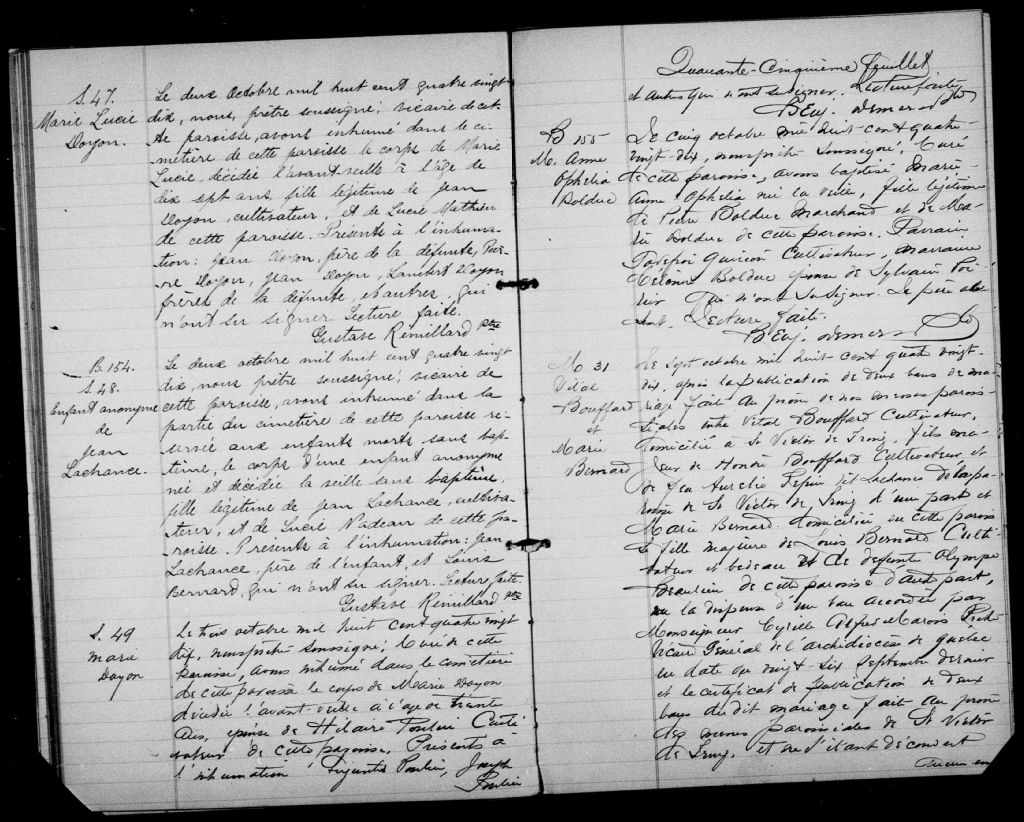 S. 47.
Marie Lucie
Doyon.
Le deux Octobre mil huit cent quatre vingt
dix, nous, prêtre soussigné, vicaire de cet-
te paroisse, avons inhumé dans le ci-
metière de cette paroisse le corps de Marie
Lucie, décédée l'avant veille à l'âge de
dix sept ans, fille légitime de Jean
Doyon, cultivateur, et de Lucie Mathieu
de cette paroisse. Présents à l'inhuma-
tion: Jean Doyon, père de la défunte, Pier-
re Doyon, Jean Doyon, Lambert Doyon
frères de la défunte, et autres qui
n'ont su signer. Lecture faite.
Gustave Rémillard Ptre
B. 154.
S. 48.
Enfant anonyme
de
Jean
Lachance.
Le deux octobre mil huit cent quatre vingt
dix, nous prêtre soussigné, vicaire de
cette paroisse, avons inhumé dans la
partie du cimetière de cette paroisse ré-
servée aux enfants morts sans bap-
tême, le corps d'une enfant anonyme
née et décédée la veille sans baptême,
fille légitime de Jean Lachance, cultiva-
teur, et de Lucie Nadeau de cette pa-
roisse. Présents à l'inhumation: Jean
Lachance, père de l'enfant, et Louis
Bernard, qui n'ont su signer. Lecture faite.
Gustave Rémillard Ptre
S. 49
Marie
Doyon
Le trois octobre mil huit cent quatre vingt
dix, nous prêtre soussigné, Curé de cette
paroisse, avons inhumé dans le cimetière
de cette paroisse le corps de Marie Doyon
décédée l'avant-veille à l'age de trente
ans, épouse de Hilaire Poulin Culti
vateur de cette paroisse. Présents à
l'inhumation Poulin, Joseph
Poulin
Quarante-Cinquième feuillet
et autres qui n'ont su signer. Lecture faite
B 155
M. Anne
Ophelia
Bolduc
Le cinq octobre mil huit-cent quatre
vingt-dix, nous prêtre soussigné, Curé
de cette paroisse, avons baptisé Marie
Anne Ophelia née la veille, fille légitime
de Pierre Bolduc Marchand et de Ma-
rie Bolduc de cette paroisse. Parrain
Cultivateur, marraine
Bolduc épouse de Sylvain Poi-
rier Qui n'ont su signer. Le père ab
sent. Lecture faite.
M 31
Vital
Bouffard
et
Marie
Bernard
Le sept octobre mil huit cent quatre vingt-
dix, après la publication de deux bans de ma-
riage faite au prône de nos messes parois-
siales entre Vital Bouffard Cultivateur,
domicilié à St Victor de Tring, fils ma-
jeur de Honoré Bouffard Cultivateur et
de feu Aurelie Pepin dit Lachance de la pa-
roisse de St Victor de Tring d'une part et
Marie Bernard domiciliée en cette parois
se fille majeure de Louis Bernard Culti-
vateur et bedeau et de défunte Olympe
Beaulieu de cette paroisse d'autre part,
vu la dispense d'un ban accordée par
Monseigneur Cyrille Alfred Marois Prêt
Vicaire Général de l'archidiocèse de Québec
en date du vingt six septembre dernier
et le certificat de publication de deux
bans du dit mariage fait au prône
des messes paroissiales de St Victor
de Tring, et ne s'étant découvert
aucun em